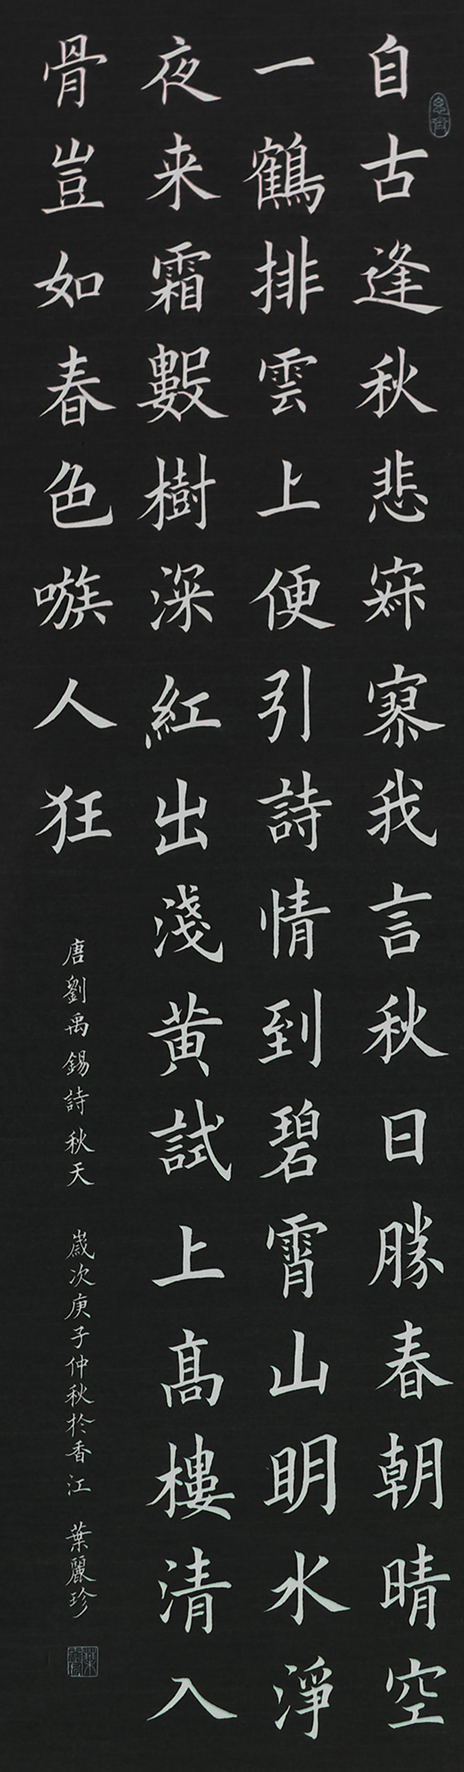 自古逢秋悲寂寥我言秋日勝春朝晴空
一鶴排雲上便引詩情到碧霄山明水淨
夜来霜數樹深紅出淺黃試上高樓清入
骨豈如春色嗾人狂
唐劉禹錫詩秋天 歲次庚子仲秋於香江 葉麗珍